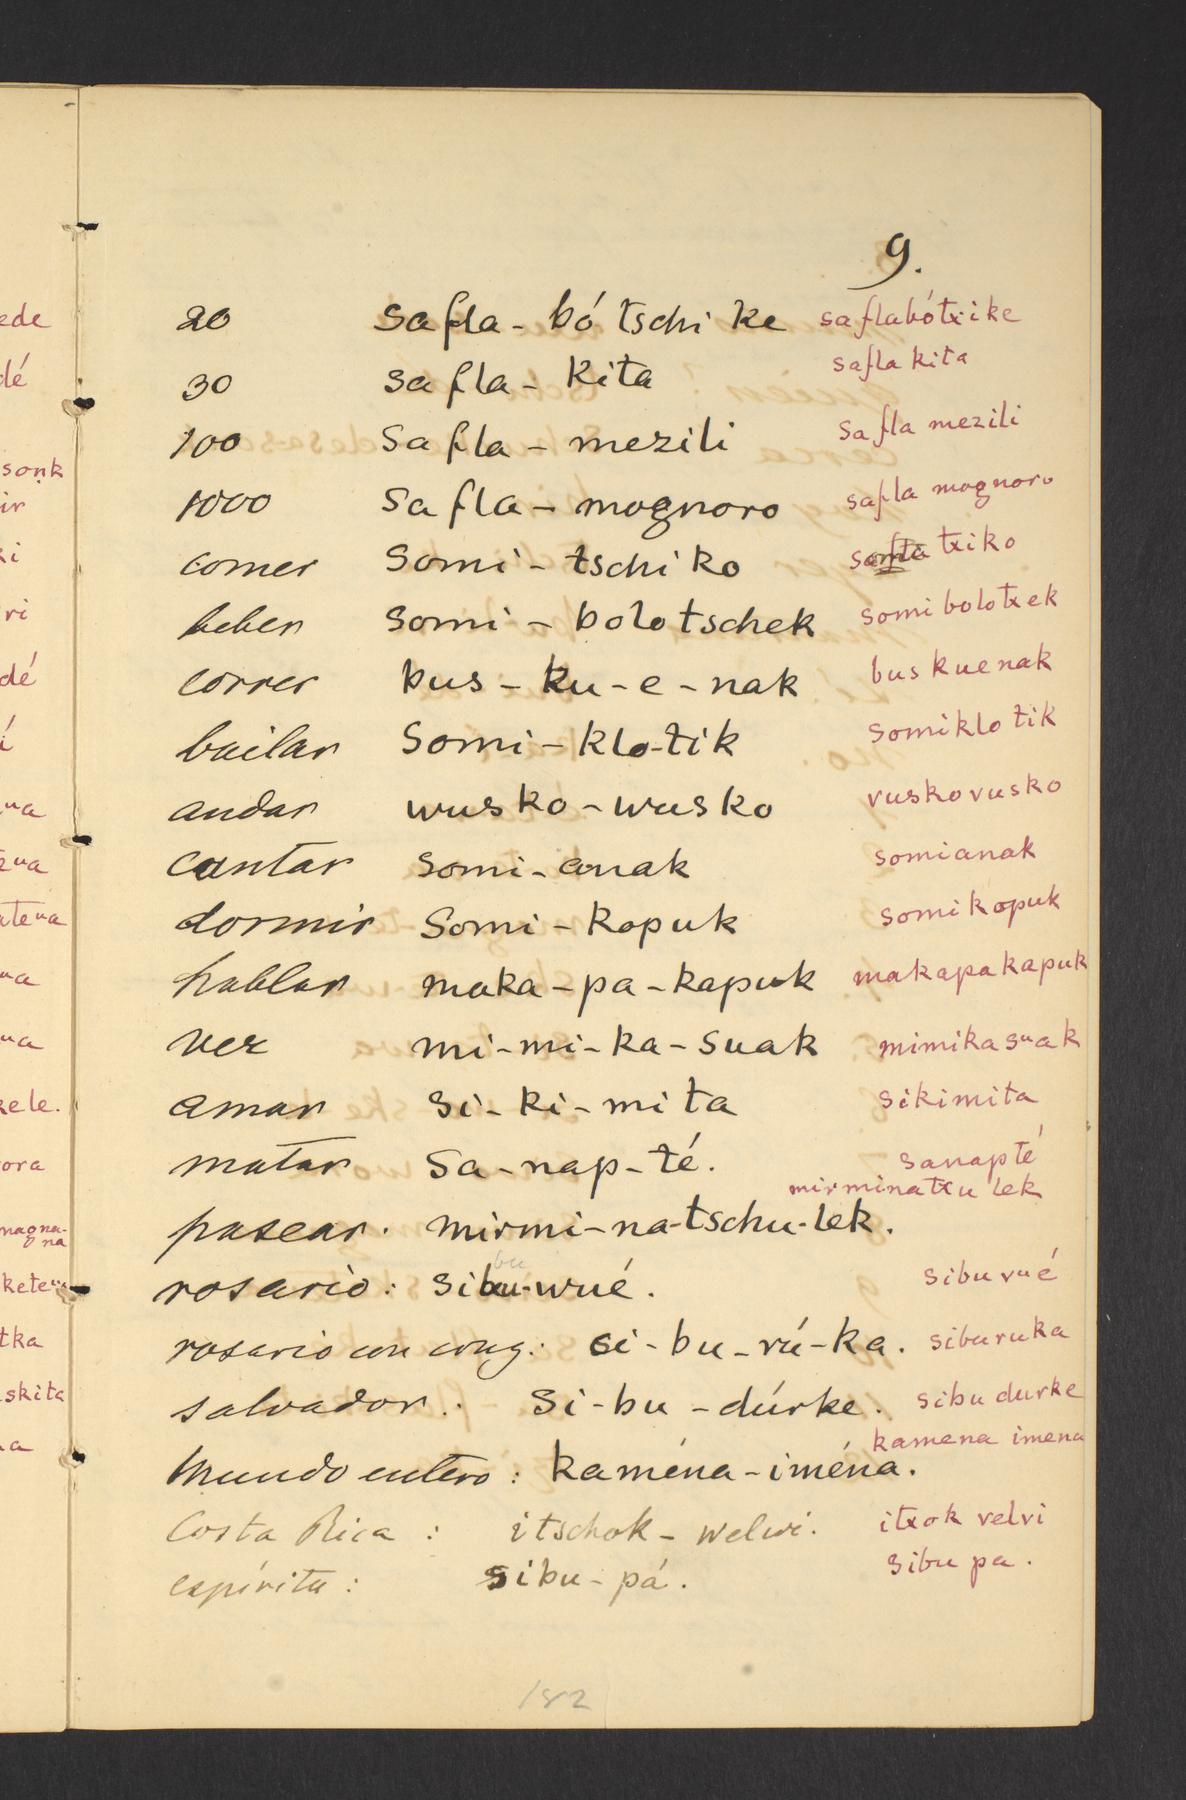 9.
20 safla - bótschike saflabótxike
30 safla - kita safla kita
100 safla - mezili safla mezili
1000 safla - mognoro safla mognoro
comer somi - tschiko txiko
beber somi - bolotschek somibolotxek
correr bus - ku - e - nak buskuenak
bailar somi - klo-tik somiklotik
andar wusko - wusko vuskovusko
cantar somi - anak somianak
dormir somi - kopuk somikopuk
hablar maka - pa - kapuk makapakapuk
ver mi - mi - ka - suak mimikasuak
amar si - ki - mita sikimita
matar sa - nap - té. sanapté
mirminatxulek
pasear. mirmi-na-tschu-lek.
rosario: sibu-wué. sibuvué
rosario con cong.: si - bu - rú - ka. siburuka
salvador.: si - bu - dúrke. sibu durke
kamena imena
mundo entero: kaména - iména.
Costa Rica: itschok - welwi. itxok velvi
espíritu: sibu - pá. sibu pa.
182
ede
dé
sonk
ir
ki
ri
dé
ua
ua
ua
kele.
ora
magna-
na
tka
skita
a